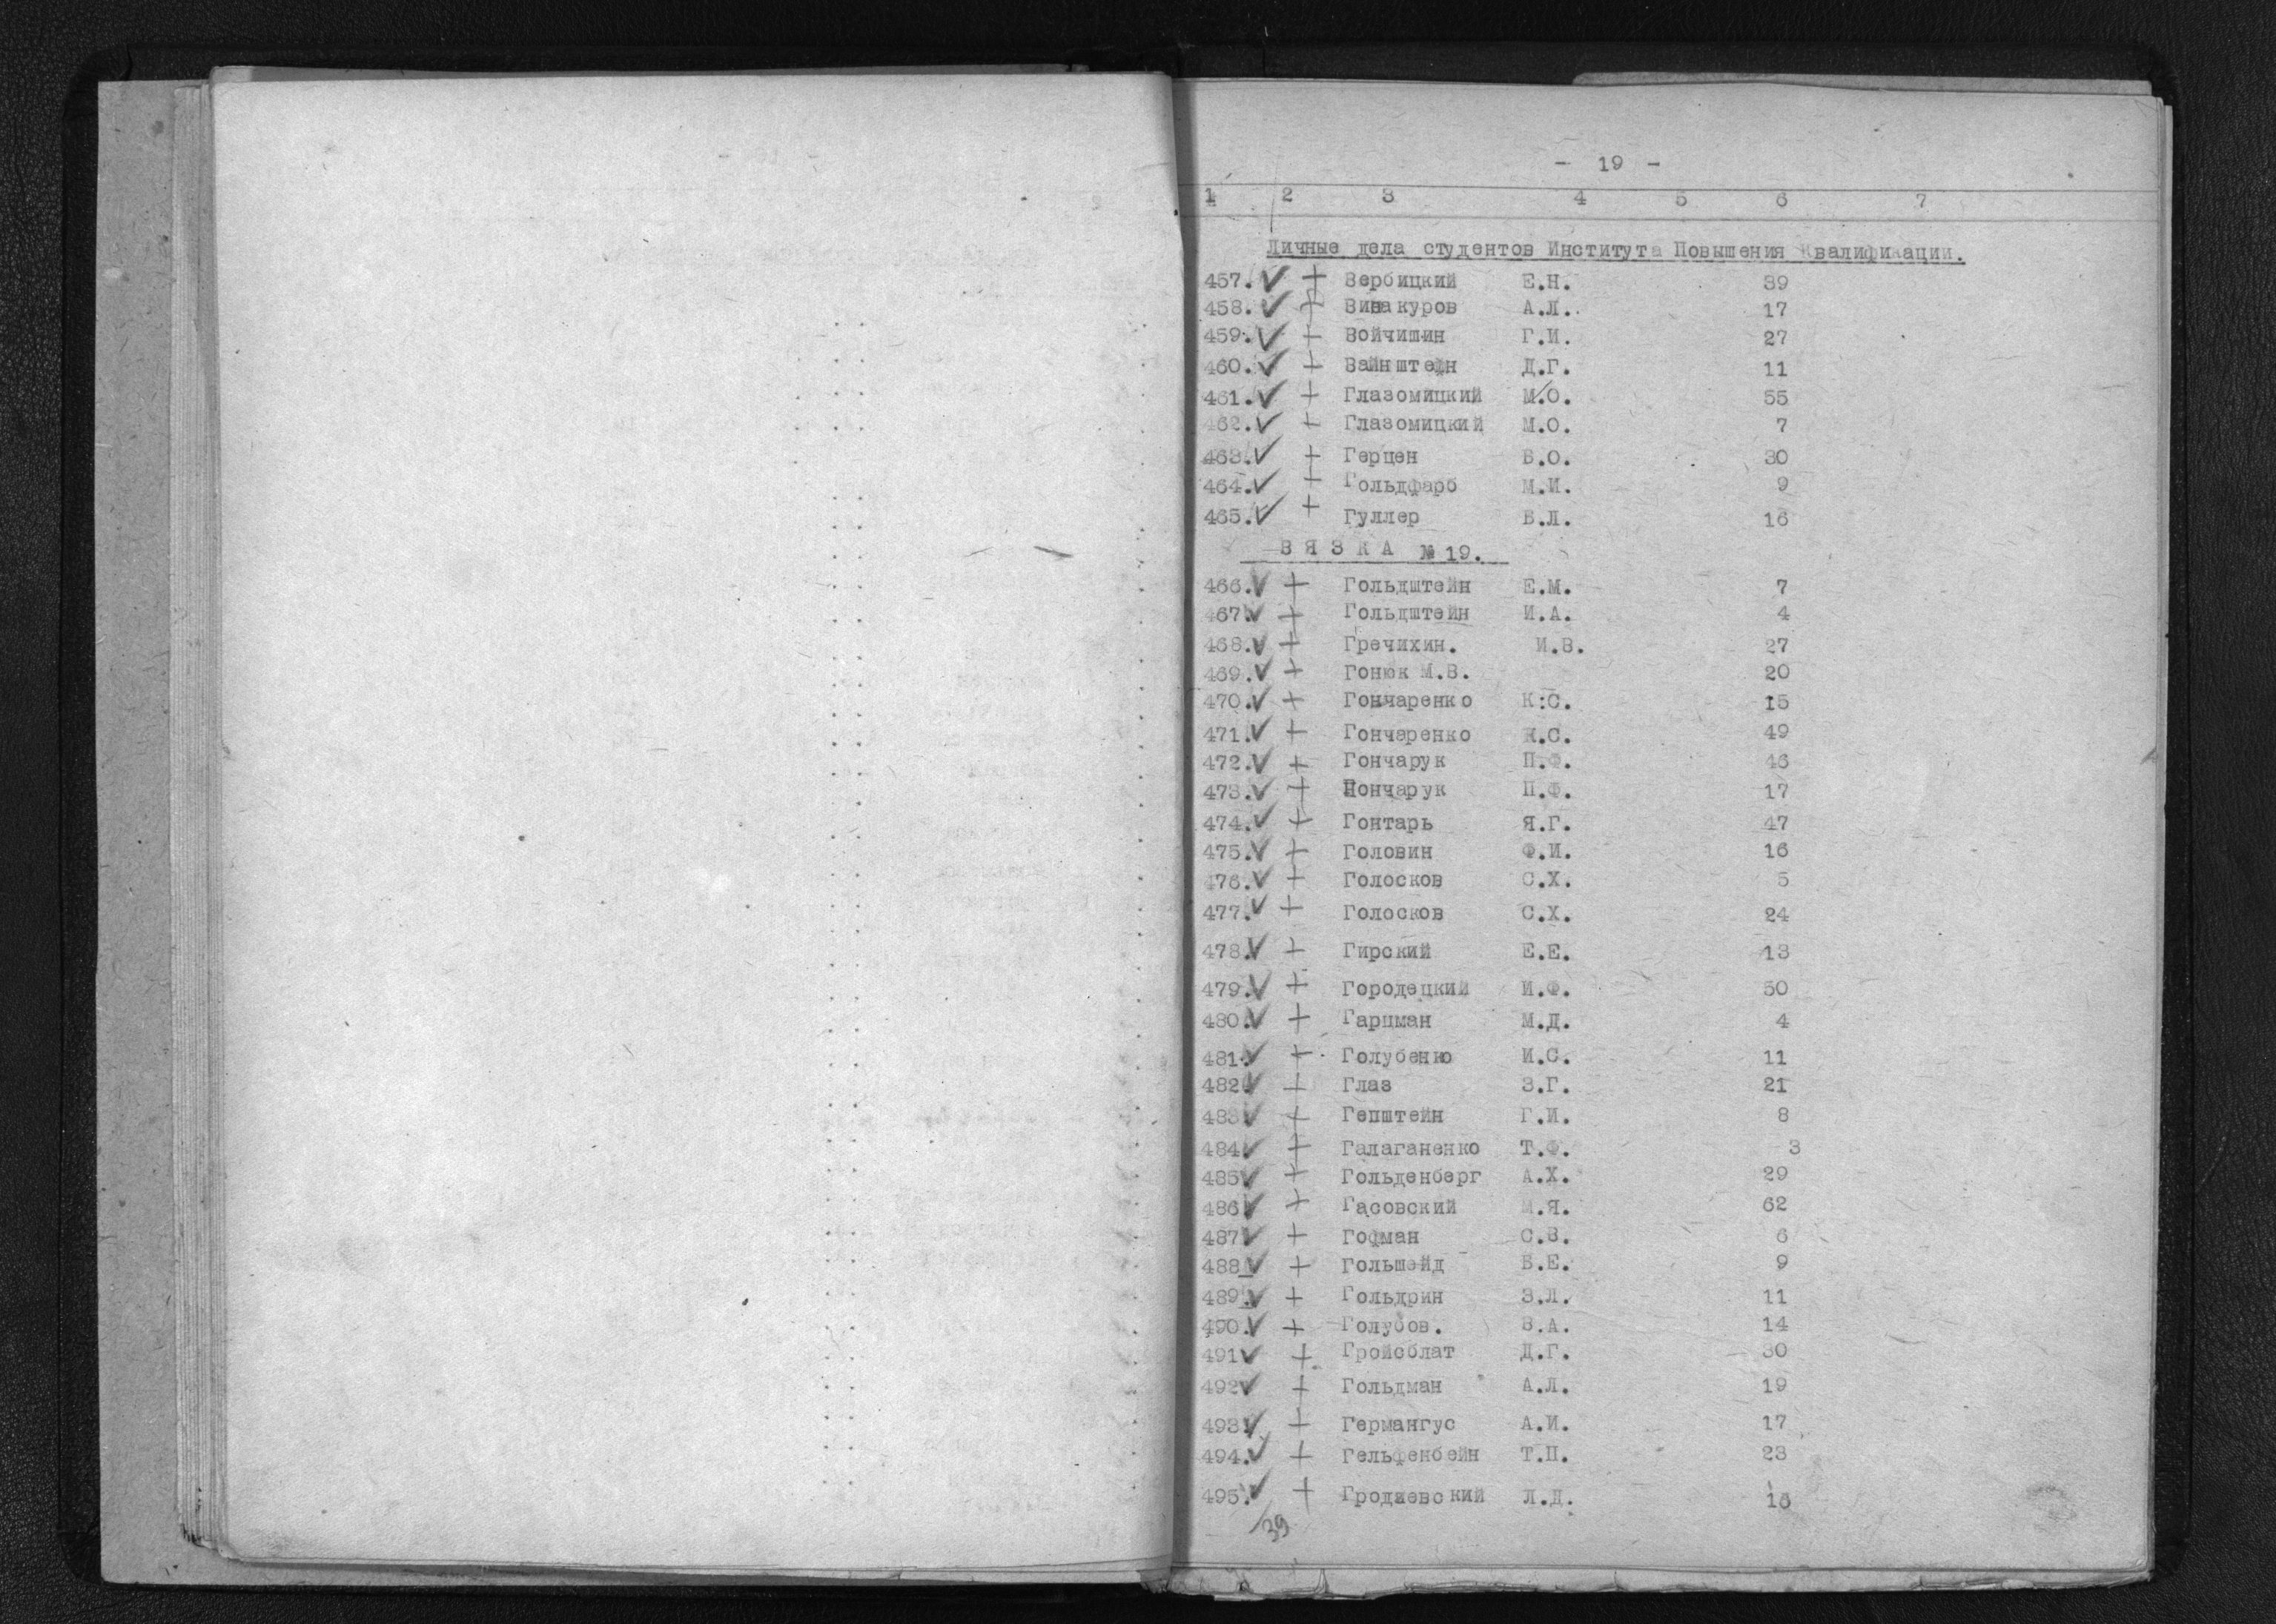 - 19 -
1 2 3 4 5 6 7
Личные дела студентов Института Повышения Квалификации.
457. V + Вербицкий Е.Н. 39
458. V + Винакуров А.Л. 17
459. V + Войчишин Г.И. 27
460. V + Вайнштейн Д.Г. 11
461. V + Глазомицкий М.О. 55
462. V + Глазомицкий М.О. 7
463. V + Герцен Б.О. 30
464. V + Гольдфарб М.И. 9
465. V + Гуллер Б.Л. 16
ВЯЗКА №19.
466. V + Гольдштейн Е.М. 7
467. V + Гольдштейн И.А. 4
468. V + Гречихин. И.В. 27
469. V + Гонюк М.В. 20
470. V + Гончаренко К:С. 15
471. V + Гончаренко К.С. 49
472. V + Гончарук П.Ф. 46
473. V + Гончарук П.Ф. 17
474. V + Гонтарь Я.Г. 47
475. V + Головин Ф.И. 16
476. V + Голосков С.Х. 5
477. V + Голосков С.Х. 24
478. V + Гирский Е.Е. 13
479. V + Городецкий И.Ф. 50
480. V + Гарцман М.Д. 4
481. V + Голубенко И.С. 11
482 V + Глаз З.Г. 21
483 V + Гепштейн Г.И. 8
484 V + Галаганенко Т.Ф. 3
485 V + Гольденберг А.Х. 29
486 V + Гасовский М.Я. 62
487 V + Гофман С.В. 6
488 V + Гольшейд Б.Е. 9
489. V + Гольдрин З.Л. 11
490. V + Голубов. В.А. 14
491 V + Гройсблат Д.Г. 30
492 V + Гольдман А.Л. 19
493. V + Германгус А.И. 17
494. V + Гельфенбейн Т.П. 23
495. V + Гродзевский Л.Д. 16
39